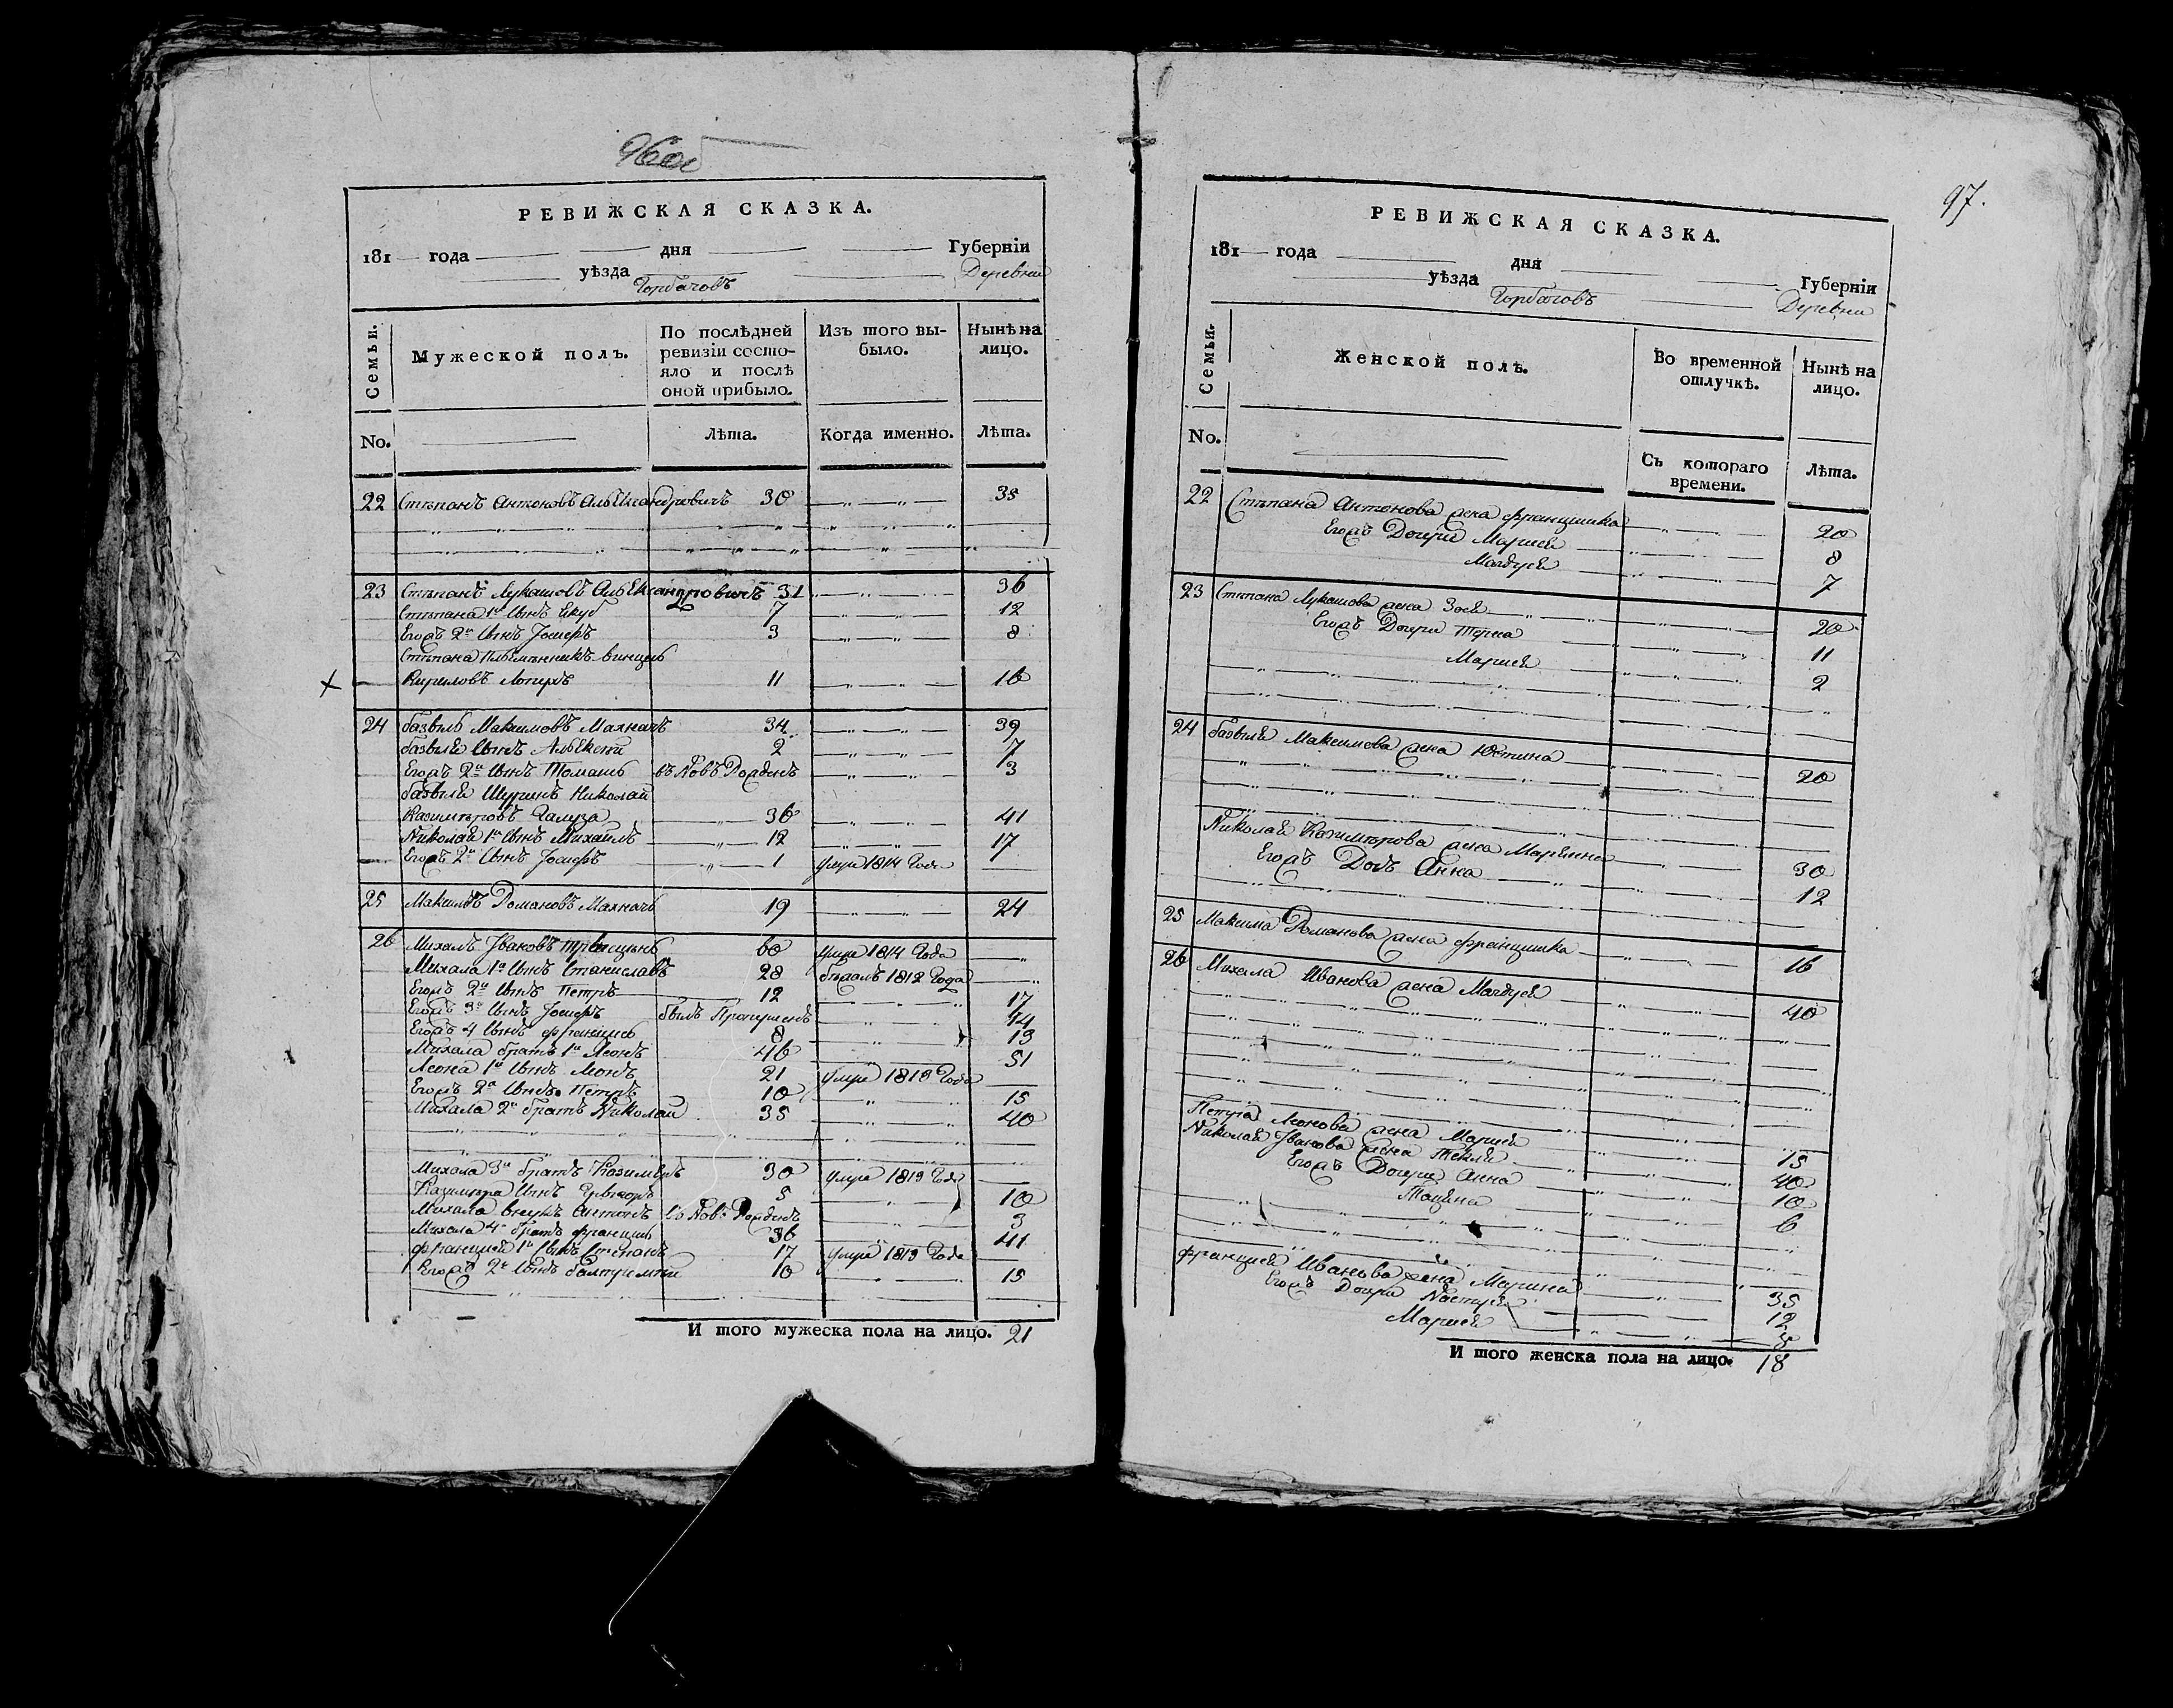 96об
РЕВИЖСКАЯ СКАЗКА.
181 — года — дня — Губерніи
уѣзда Горбачовъ Деревни
Семьи. Мужеской полъ. По послѣдней ревизіи состояло и послѣ оной прибыло. Изъ того выбыло. Нынѣ на лицо.
No. Лѣта. Когда именно. Лѣта.
22 Стѣпанъ Антоновъ Альександровичъ 30 — „ — „ — 35
23 Стѣпанъ Лукашовъ Альександровичъ 31 — „ — „ — 36
Стѣпана 1й Сынъ Якуб 7 — „ — „ — 12
Егожъ 2й Сынъ Јосифъ 3 — „ — „ — 8
Стѣпана Пльемѣнникъ Винцѣс
Кириловъ 11 — „ — „ — 16
24 Базыль Максимовъ Махначъ 34 — „ — „ — 39
Базыля Сынъ Альексѣй 2 — „ — „ — 7
Егожъ 2й Сынъ Томашъ въ Новъ Рожденъ — „ — „ — 3
Базыля Шуринъ Николай
Казимѣровъ Галуза — „ — 36 — „ — „ — 41
Николая 1й Сынъ Михайлъ — „ — 12 — „ — „ — 17
Егожъ 2й Сынъ Јосифъ — „ — 1 умре 1814 Года —
25 Максимъ Романовъ Махначъ 19 — „ — „ — 24
26 Михалъ Јвановъ 60 умре 1814 Года — „
Михала 1й Сынъ Станиславъ 28 бѣжалъ 1812 Года — „
Егожъ 2й Сынъ Петръ 12 — „ — „ 17
Егожъ 3й Сынъ Јосифъ былъ 14
Егожъ 4 Сынъ Францишъ 8 — „ 13
Михала братъ 1й Леонъ 46 — „ — 51
Леона 1й Сынъ Леонъ 21 умре 1813 Года —
Егожъ 2й Сынъ Петръ 10 — „ — 15
Михала 2й братъ Николай 35 — „ — 40
Михала 3й братъ Казимѣръ 30 умре 1813 Года —
Казимѣра Сынъ Грыгоръ 5 — „ — 10
Михала внукъ Антонъ въ Новъ Рожденъ — „ — 3
Михала 4й братъ Францишъ 36 — „ — 41
Францишей 1й Сынъ Стѣпанъ 17 умре 1813 Года —
Егожъ 2й Сынъ 10 — „ — 15
И того мужеска пола на лицо. 21
97.
РЕВИЖСКАЯ СКАЗКА.
181 — года — дня — Губерніи
уѣзда Горбачовъ Деревни
Семьи. Женской полъ. Во временной отлучкѣ. Нынѣ на лицо.
No. Съ котораго времени. Лѣта.
22 Стѣпана Антонова жена Францишка — „ — 20
Егожъ Дочери Марыя — „ — 8
Магдуся — „ — 7
23 Стѣпана Лукашова жена Зося — „ — 20
Егожъ Дочери — „ — 11
Марыя — „ — 2
24 Базыля Максимова жена Юстина — „ — 20
Николая Казимѣрова жена Марьянна — „ — 30
Егожъ Дочь Анна — „ — 12
25 Максима Романова жена Францишка — „ — 16
26 Михала Иванова жена Магдуся — „ — 40
Петра Леонова жена Марыя — „ — 15
Николая Јванова жена Текля — „ — 40
Егожъ Дочери Анна — „ — 10
Тацяна — „ — 6
Францишей Иванова жена Марина — „ — 35
Егожъ Дочери Настуся — „ — 12
Марыя — „ — 3
И того женска пола на лицо. 18